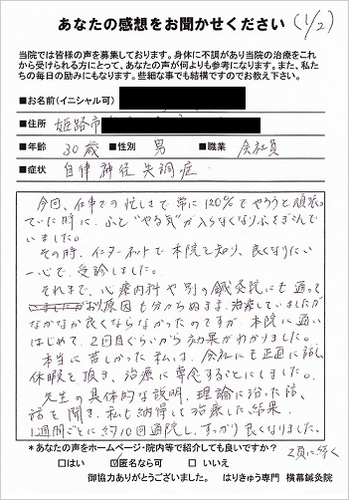 あなたの感想をお聞かせください (1/2)
当院では皆様の声を募集しております。身体に不調があり当院の治療をこれ
から受けられる方にとって、あなたの声が何よりも参考になります。また、私た
ちの毎日の励みにもなります。些細な事でも結構ですのでお教え下さい。
■お名前(イニシャル可)
■住所 姫路市
■年齢 30歳 ■性別 男 ■職業 会社員
■症状 自律神経失調症
今回、仕事での忙しさで常に120%でやろうと頑張っ
ていた時に、ふと“やる気”が入らなくなりふさぎこんで
いました。
その時、インターネットで本院を知り、良くなりたい
一心で、受診しました。
それまで、心療内科や別の鍼灸院にも通って
おり原因も分からぬまま、治療していましたが
なかなか良くならなかったのですが、本院に通い
はじめて、2回目ぐらいから効果がわかりました。
本当に苦しかった私は、会社にも正直に話し
休暇を頂き、治療に専念することにしました。
先生の具体的な説明、理論に沿った話、
話を聞き、私も納得して治療した結果、
1週間ごとに約10回通院し、すっかり良くなりました。
*あなたの声をホームページ・院内等で紹介しても良いですか? 2頁に続く
□はい ☑匿名なら可 □いいえ
御協力ありがとうございました。 はりきゅう専門 横幕鍼灸院